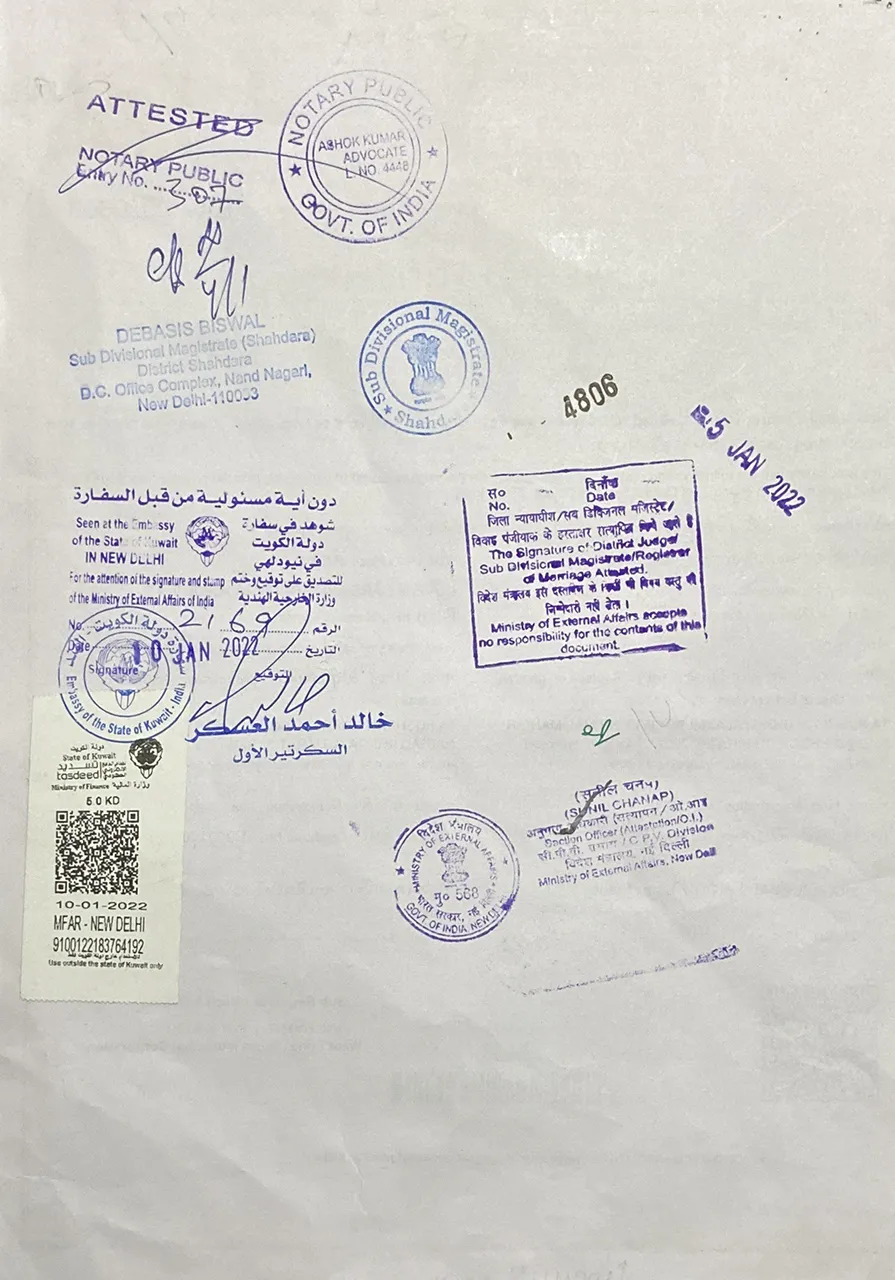 ATTESTED
NOTARY PUBLIC
Entry No. 307
NOTARY PUBLIC
ASHOK KUMAR
ADVOCATE
L.NO. 4448
GOVT. OF INDIA
DEBASIS BISWAL
Sub Divisional Magistrate (Shahdara)
District Shahdara
D.C. Office Complex, Nand Nagari,
New Delhi-110093
Sub Divisional Magistrate
Shahd
4806
5 JAN 2022
دون أية مسئولية من قبل السفارة
Seen at the Embassy شوهد في سفارة
of the State of Kuwait دولة الكويت
IN NEW DELHI في نيودلهي
For the attention of the signature and stamp للتصديق على توقيع وختم
of the Ministry of External Affairs of India وزارة الخارجية الهندية
No. 2169 الرقم
Date 10 JAN 2022 التاريخ
Signature التوقيع
Embassy of the State of Kuwait - India
خالد أحمد العسكر
السكرتير الأول
सं० दिनाँक
No. Date
जिला न्यायाधीश/सब डिविजनल मजिस्ट्रेट/
विवाह पंजीयक के हस्ताक्षर सत्यापित किये जाते है
The Signature of District Judge/
Sub Divisional Magistrate/Register
of Marriage Attested.
विदेश मंत्रालय इस दस्तावेज के किसी भी विषय वस्तु की
जिम्मेदारी नही लेता।
Ministry of External Affairs accepts
no responsibility for the contents of this
document.
دولة الكويت
State of Kuwait
تسديد
tasdeed
Ministry of Finance وزارة المالية
5.0 KD
10-01-2022
MFAR - NEW DELHI
9100122183764192
Use outside the state of Kuwait only
विदेश मंत्रालय
MINISTRY OF EXTERNAL AFFAIRS
मु० 568
भारत सरकार, नई दिल्ली
GOVT. OF INDIA, NEW DELHI
(SUNIL CHANAP)
Section Officer (Attestation/O.I.)
C.P.V. Division
विदेश मंत्रालय, नई दिल्ली
Ministry of External Affairs, New Delhi